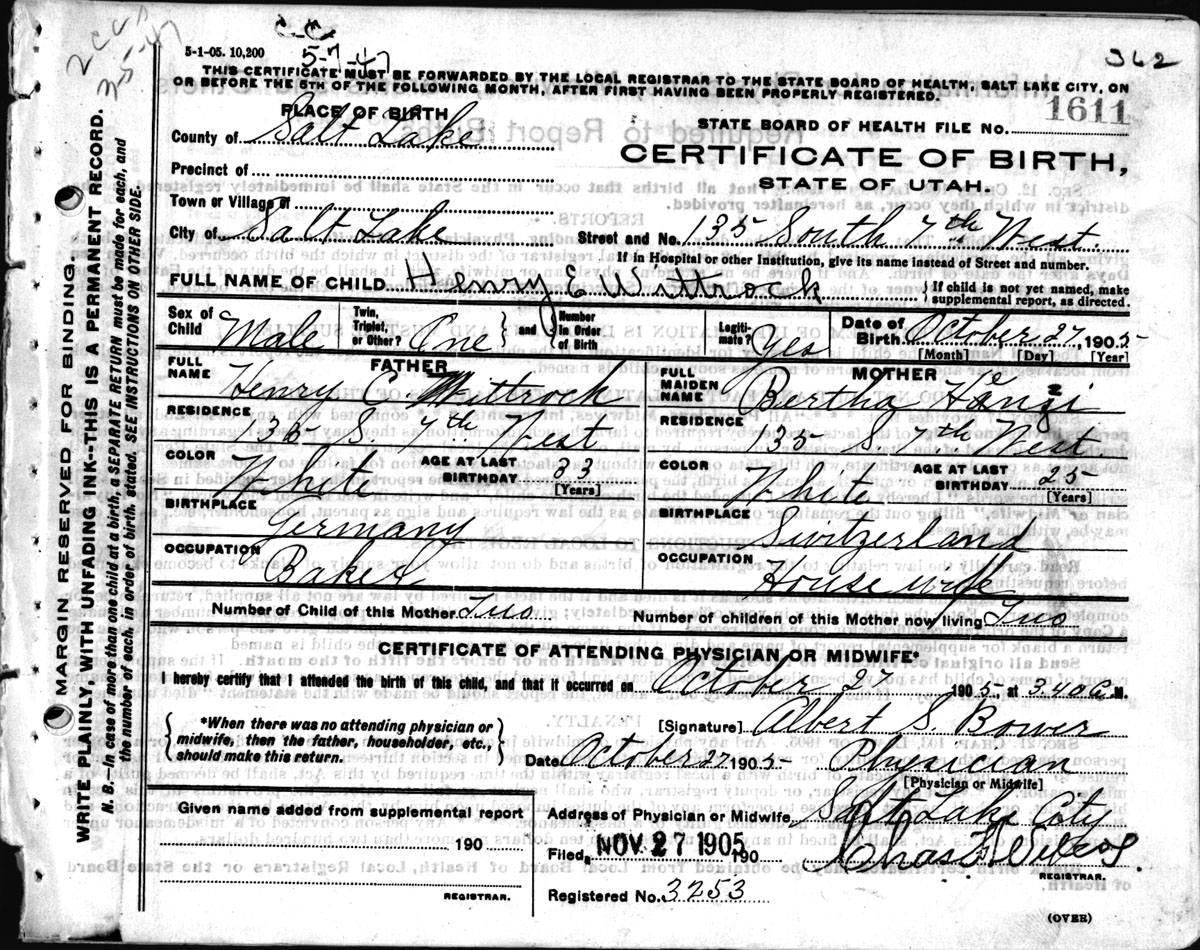 2 CC's
3-5-47
C.C.
5-7-47
362
5-1-05. 10,200
THIS CERTIFICATE MUST BE FORWARDED BY THE LOCAL REGISTRAR TO THE STATE BOARD OF HEALTH, SALT LAKE CITY, ON
OR BEFORE THE 5TH OF THE FOLLOWING MONTH, AFTER FIRST HAVING BEEN PROPERLY REGISTERED.
PLACE OF BIRTH
STATE BOARD OF HEALTH FILE NO. 1611
County of Salt Lake
CERTIFICATE OF BIRTH,
Precinct of
STATE OF UTAH.
Town or Village of
City of Salt Lake Street and No. 135 South 7th West.
If in Hospital or other Institution, give its name instead of Street and number.
FULL NAME OF CHILD Henry E Wittrock { If child is not yet named, make supplemental report, as directed.
Sex of Child Male Twin, Triplet, or Other? One } and { Number in Order of Birth Legiti-mate? Yes Date of Birth October 27, 1905
[Month] [Day] [Year]
FATHER
FULL NAME Henry C. Wittrock
RESIDENCE 135 S. 7th West
COLOR White AGE AT LAST BIRTHDAY 33
[Years]
BIRTHPLACE Germany
OCCUPATION Baker
MOTHER
FULL MAIDEN NAME Bertha
RESIDENCE 135 S. 7th West
COLOR White AGE AT LAST BIRTHDAY 25
[Years]
BIRTHPLACE Switzerland
OCCUPATION Housewife
Number of Child of this Mother Two Number of children of this Mother now living Two
CERTIFICATE OF ATTENDING PHYSICIAN OR MIDWIFE*
I hereby certify that I attended the birth of this child, and that it occurred on October 27 1905, at 340 a. M.
{ *When there was no attending physician or
midwife, then the father, householder, etc.,
should make this return. }
[Signature] Albert S. Bower
Date October 27 1905 Physician
[Physician or Midwife]
Given name added from supplemental report
190
REGISTRAR.
Address of Physician or Midwife Salt Lake City
Filed, NOV 27 1905 190
REGISTRAR.
Registered No. 3253
(OVER)
MARGIN RESERVED FOR BINDING
WRITE PLAINLY, WITH UNFADING INK--THIS IS A PERMANENT RECORD.
N. B.—In case of more than one child at a birth, a SEPARATE RETURN must be made for each, and
the number of each, in order of birth, stated. SEE INSTRUCTIONS ON OTHER SIDE.